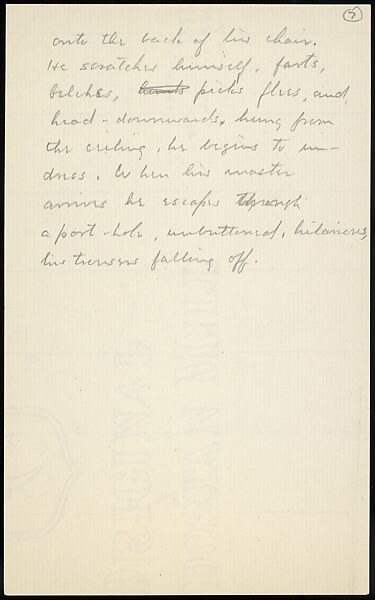 7
onto the back of his chair.
He scratches himself, farts,
belches, hunts picks flees, and,
head-downwards, hung from
the ceiling, he begins to un-
dress. When his master
arrives he escapes through
a port-hole, unbuttoned, hilarious,
his trousers falling off.
ORIGINAL
MILL